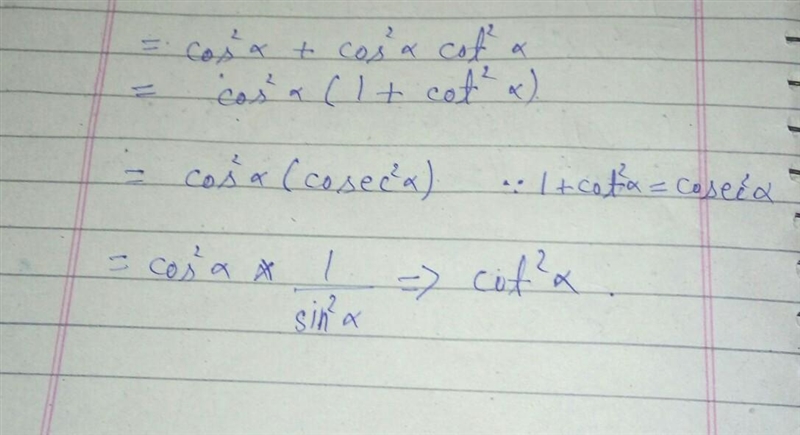 = cos²α + cos²α cot²α
= cos²α (1 + cot²α)
= cos²α (cosec²α) ∵ 1+cot²α = cosec²α
= cos²α × 1/sin²α => cot²α.